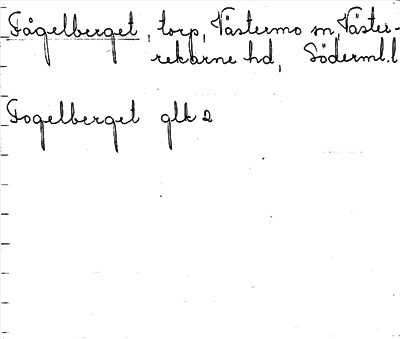 Fågelberget, torp, Västermo sn, Väster-
rekarne hd, Söderml.l
Fogelberget glk 2